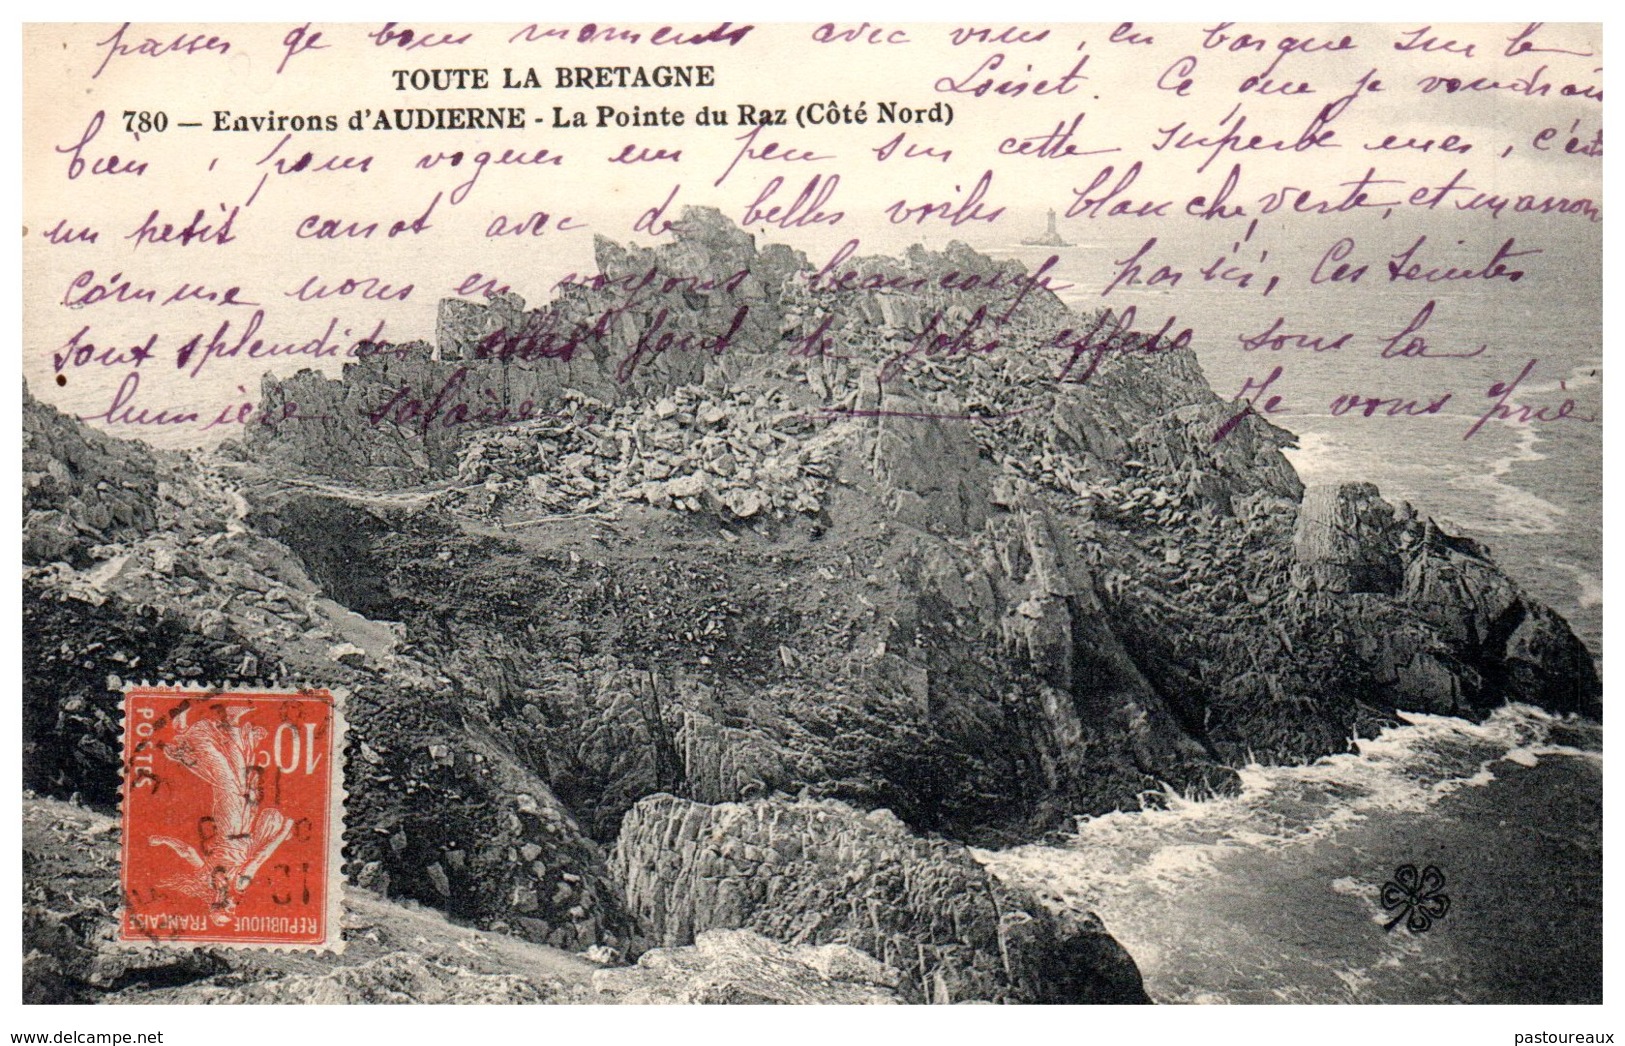 passer de bons moments avec vous, en barque sur le
TOUTE LA BRETAGNE
Loiret. Ce que je voudrais
780 — Environs d'AUDIERNE - La Pointe du Raz (Côté Nord)
bien, pour voguer un peu sur cette superbe mer, c'est
un petit canot avec de belles voiles blanche, verte, et marron
comme nous en voyons beaucoup par ici, Ces teintes
sont splendides font de jolis effets sous la
lumière solaire.
Je vous prie
POSTES
10c
REPUBLIQUE FRANÇAISE
delcampe.net
pastoureaux